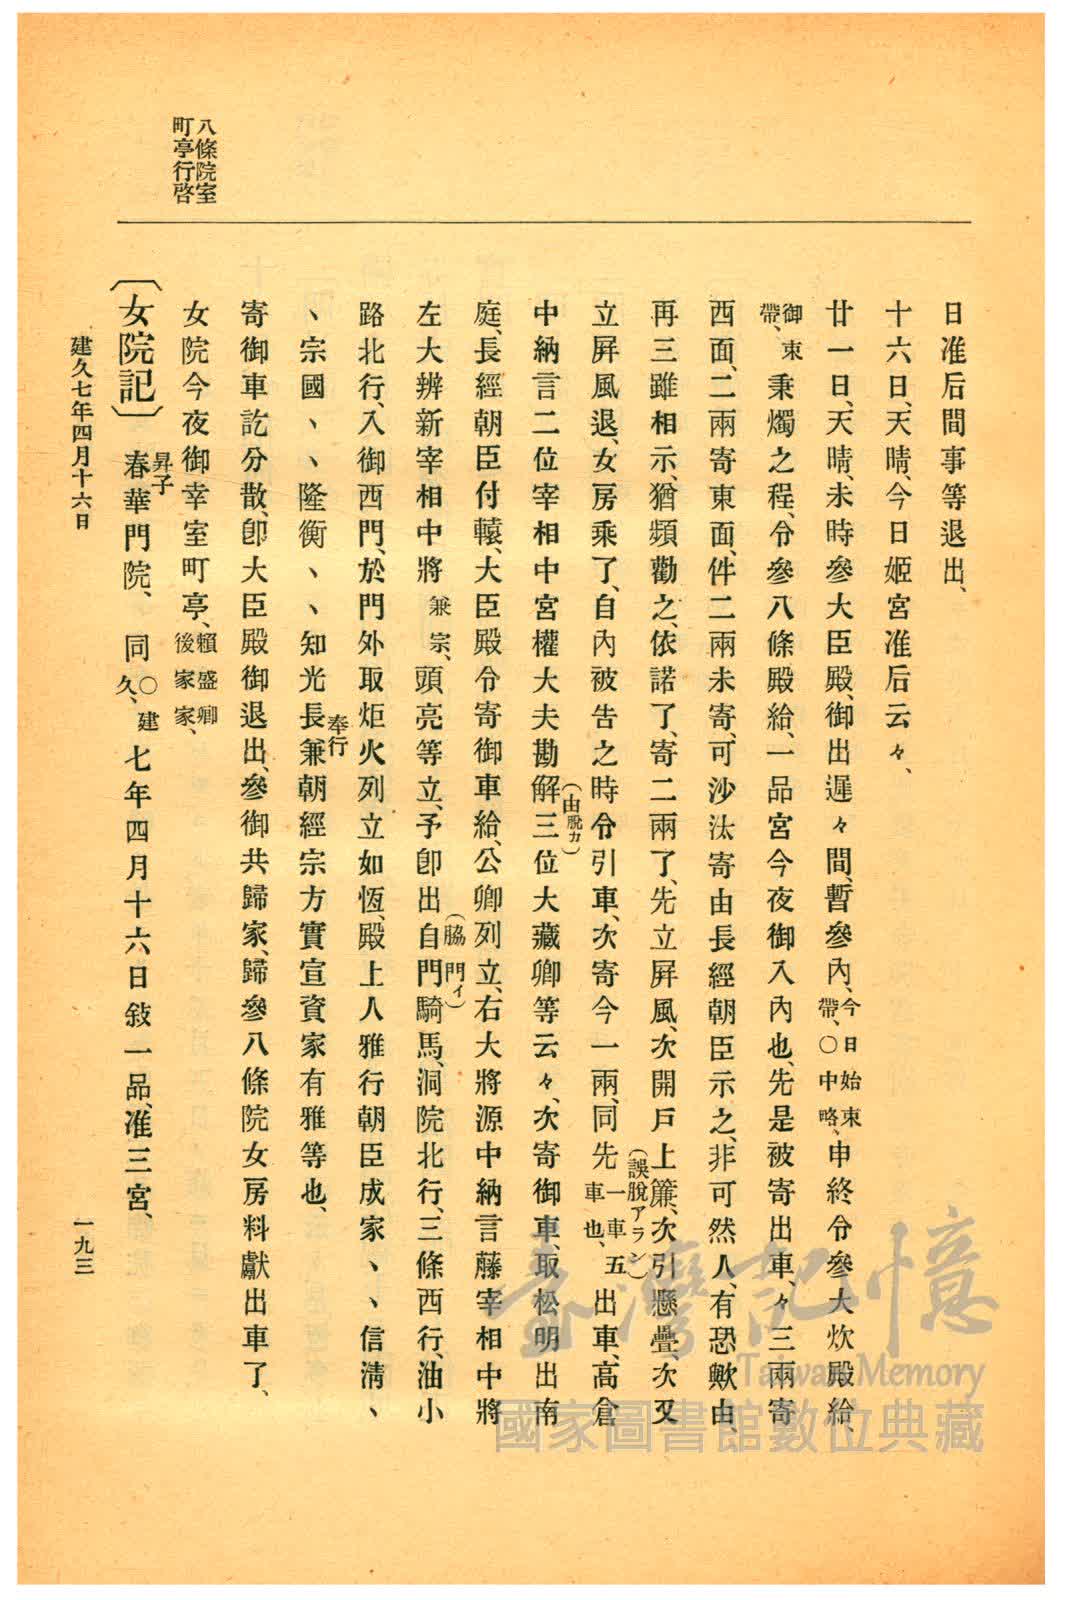 八條院室
町亭行啓
日准后間事等退出、
十六日、天晴、今日姬宮准后云々、
廿一日、天晴、未時參大臣殿、御出遲々間、暫參內、今日始束帶、〇中略、申終令參大炊殿給、
御束帶、秉燭之程、令參八條殿給、一品宮今夜御入內也、先是被寄出車、々三兩寄
西面、二兩寄東面、件二兩未寄、可沙汰寄由長經朝臣示之、非可然人、有恐歟由、
再三雖相示、猶頻勸之、依諾了、寄二兩了、先立屛風、次開戶上簾、次引懸疊、次又(誤脫アラン)
立屛風退、女房乘了、自內被告之時令引車、次寄今一兩、同先一車五車也、出車、高倉
中納言二位宰相中宮權大夫勘解(由脫カ)三位大藏卿等云々、次寄御車、取松明出南
庭、長經朝臣付轅、大臣殿令寄御車給、公卿列立、右大將源中納言藤宰相中將
左大辨新宰相中將兼宗、頭亮等立、予卽出自門(脇門イ)騎馬、洞院北行、三條西行、油小
路北行、入御西門、於門外取炬火列立如恆、殿上人雅行朝臣成家、、信淸、
、宗國、、隆衡、、知光長兼奉行朝經宗方實宣資家有雅等也、
寄御車訖分散、卽大臣殿御退出、參御共歸家、歸參八條院女房料獻出車了、
女院今夜御幸室町亭、賴盛卿後家家、
〔女院記〕春華門院、昇子 同〇建久、七年四月十六日敍一品、准三宮、
建久七年四月十六日
一九三
臺灣記憶
Taiwan Memory
國家圖書館數位典藏